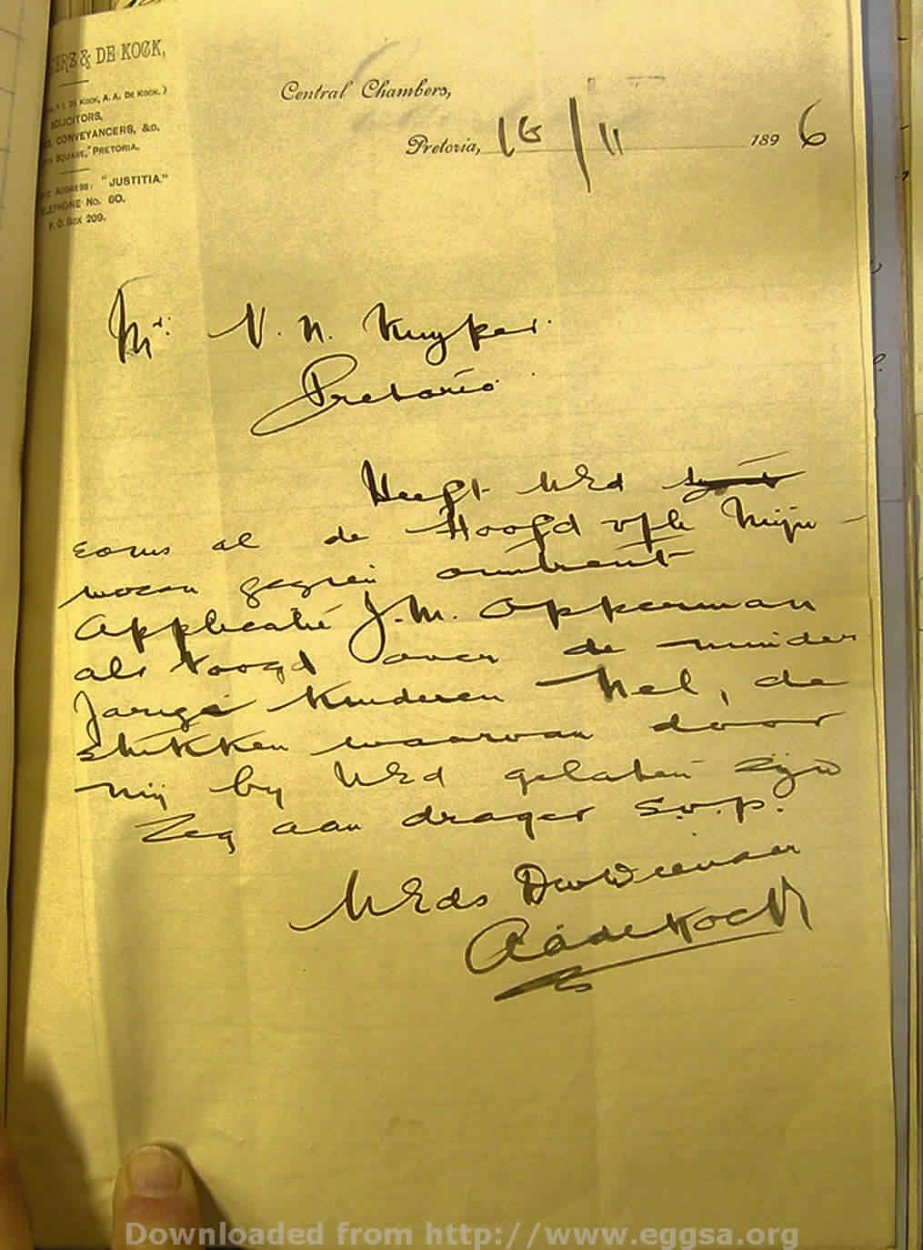 & DE KOCK,
DE KOCK, A. A. DE KOCK.)
SOLICITORS,
CONVEYANCERS, &O.
SQUARE," PRETORIA.
ADDRESS: "JUSTITIA."
TELEPHONE NO. 60.
P. O. BOX 209.
Central Chambers,
Pretoria, 16/11 1896
Mr. N. Kuyper.
Pretoria.
Heeft UEd
eens al de Hoofd v/d Mijn-
wezen gezien omtrent
Applicatie J.M. Opperman
als Voogd over de minder
Jarige Kinderen Nel, de
stukken waarvan door
mij by UEd gelaten zijn
Zeg aan drager s.v.p.
UEds Dw Dienaar
AAdeKock
Downloaded from http://www.eggsa.org